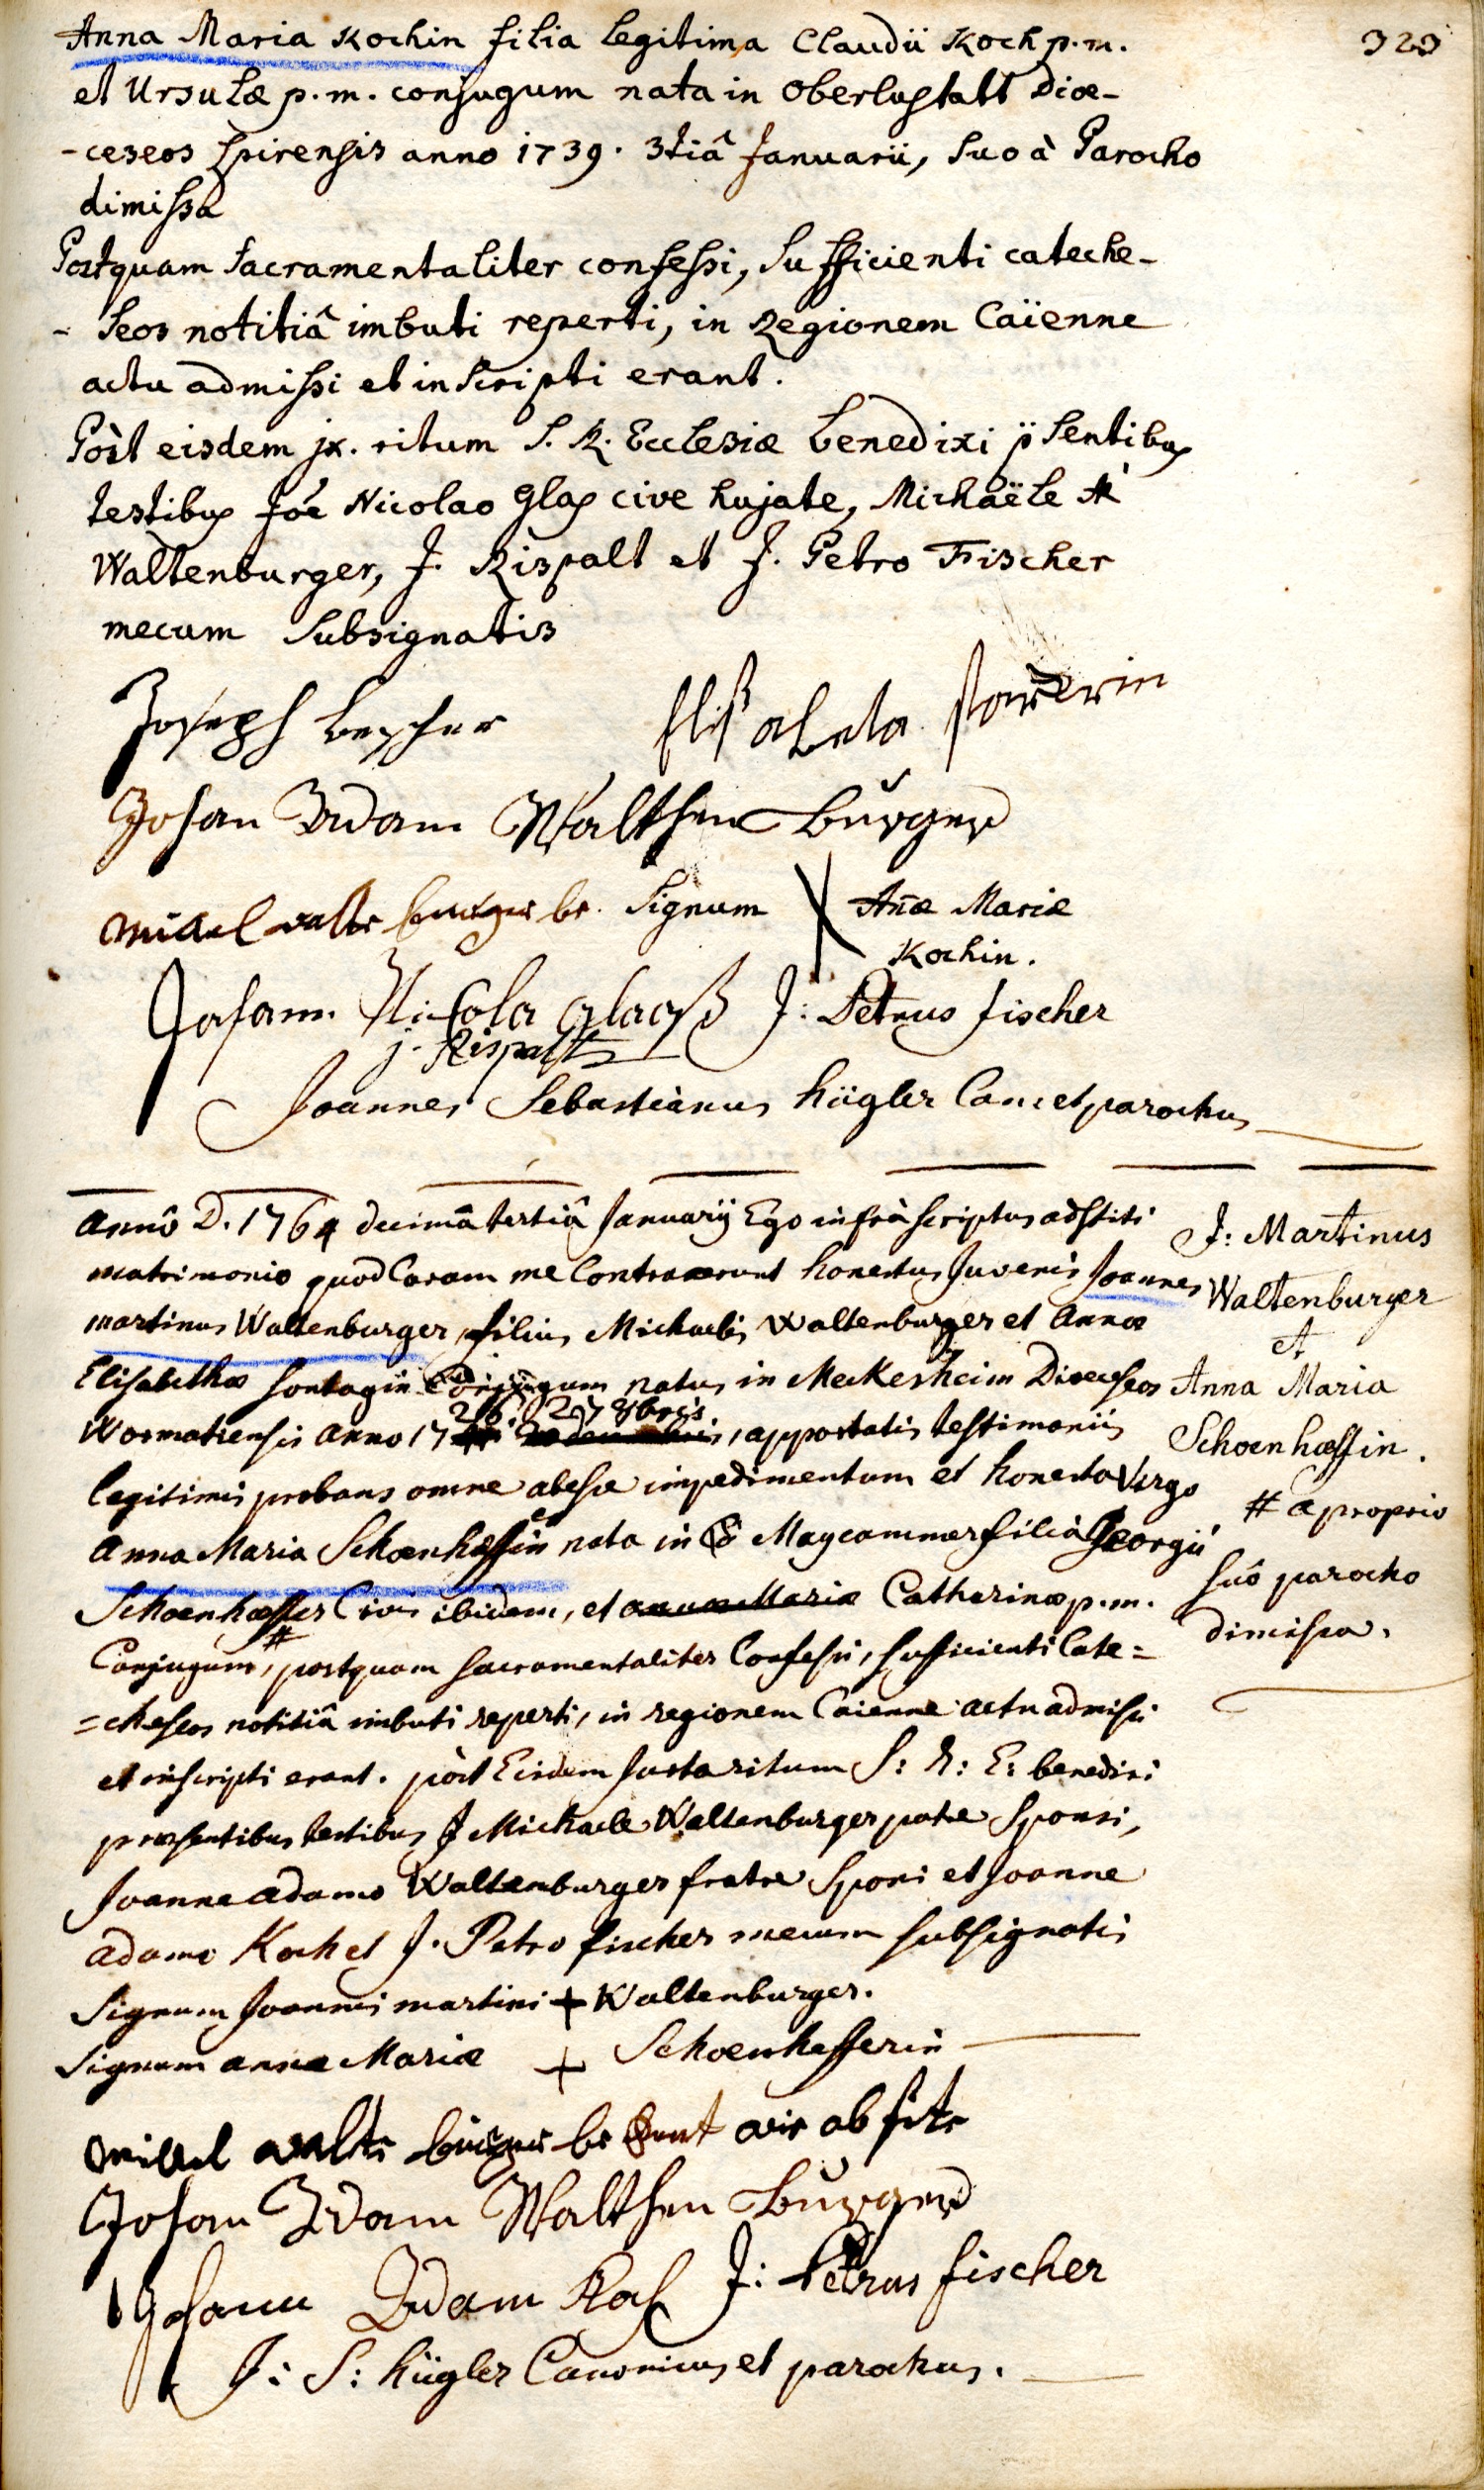 323
Anna Maria Kochin filia legitima Claudii Koch p.m.
et Ursulæ p.m. conjugum nata in Oberlustatt Diœ-
-ceseos Spirensis anno 1739. 3tiâ Januarii, suo à Parocho
dimissa
Postquam sacramentaliter confessi, sufficienti cateche-
- seos notitiâ imbuti reperti, in Regionem Caïenne
actu admissi et inscripti erant.
Pòst eisdem jx. ritum S. R. Ecclesiæ benedixi p̈sentibus
testibus Joẽ Nicolao Glas cive hujate, Michaële
Waltenburger, J. Rispalt et J. Petro Fischer
mecum subsignatis
Joseph
Elisabeta
Johan Adam Walthen Burger
Signum X Anæ Mariæ
Kochin.
Johann Nicola Glaaß J: Petrus fischer
j. Rispalt
Joannes Sebastianus hügler Can: et parochus
Annô D. 1764 decimâ tertiâ Januarij Ego infrà scriptus adstiti
matrimonio quod Coram me Contraxerunt honestus Juvenis Joannes
martinus Waltenburger, filius Michaelis Waltenburger et Annæ
Elisabethæ sontagin Conjugum natus in Meckesheim Diœceseos
26 27 8bris
Wormatiensis anno 17 , apportatis testimoniis
legitimis probans omne abesse impedimentum et honesta Virgo
Anna Maria Schoenhæffin nata in Maycammer filia Georgii
Schoenhæffer Civis ibidem, et annæ Mariæ Catherinæ p.m.
Conjugum, # postquam sacramentaliter Confessi, sufficienti Cate=
=cheseos notitiâ imbuti reperti, in regionem Caienne actu admissi
et inscripti erant. pòst Eisdem Juxta ritum S: R: E: benedixi
præsentibus testibus J Michaele Waltenburger patre Sponsi,
Joanne adamo Waltenburger fratre Sponsi et Joanne
adamo Koch et J. Petro fischer mecum subsignatis
Signum Joannis martini + Waltenburger.
Signum annæ Mariæ + Schoenhefferin
Johan Adam Walthen Burger
Johann Adam Koch J: Petrus fischer
J: S: hügler Canonicus et parochus.
J: Martinus
Waltenburger
et
Anna Maria
Schoenhæffin.
# a proprio
suô parocho
dimissa.